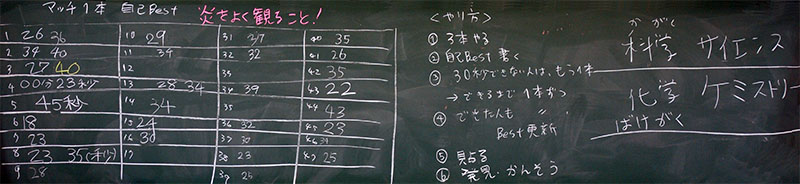 マッチ1本 自己Best 炎をよく観ること!
1 26 36
2 34 40
3 27 40
4 00分23秒
5 45秒
6 18
7 23
8 23 35(オ1リ)
9 28
10 29
11 34
12
13 28 34
14 34
15 24
16 30
17
31 37
32 32
33
34 39
35
36 32
37 30
38 23
39 25
40 35
41 26
42 35
43 22
44 43
45 23
46
47 25
<やり方>
① 3本やる
② 自己Best 書く
③ 30秒できない人は、もう1本
→できるまで1本ずつ
④ できた人も 〃
Best更新
⑤ 見る
⑥ 発見・かんそう
かがく
科学 サイエンス
化学 ケミストリー
ばけがく